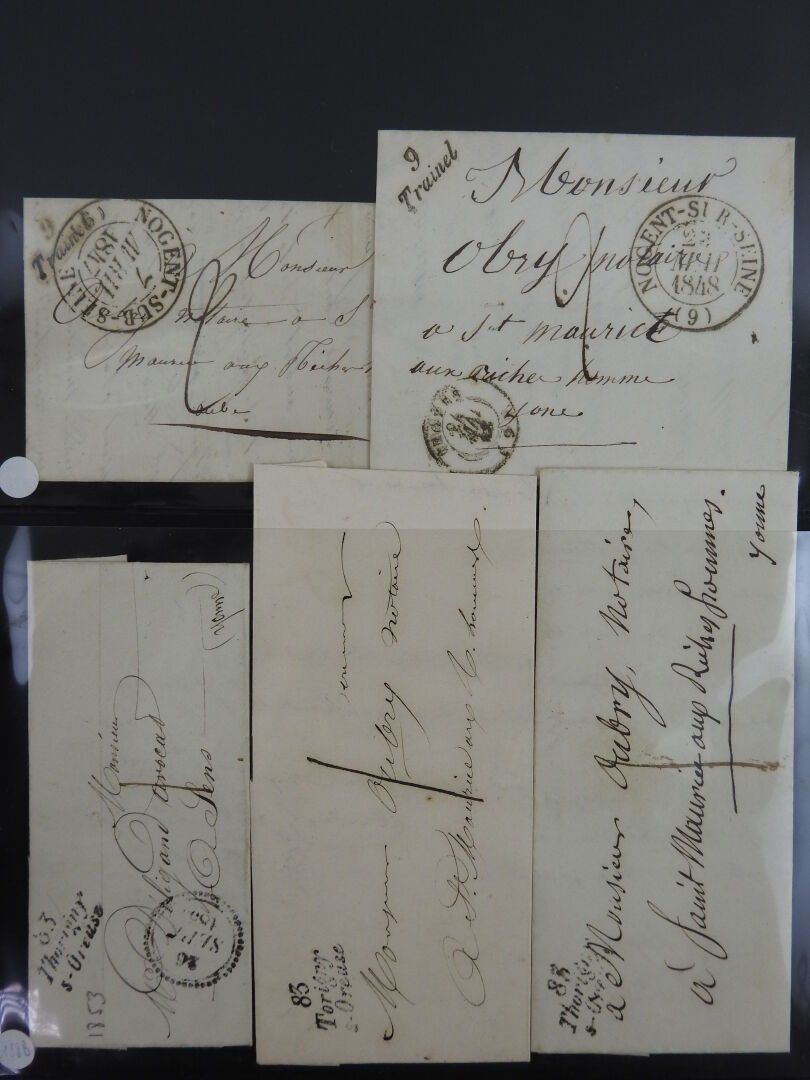 9
Trainel
NOGENT-SUR-SEINE
Monsieur
notaire a St
maurice aux Riches
aube
9
Trainel
Monsieur
Obry notaire
a St maurice
aux riches homme
yone
NOGENT-SUR-SEINE
1848
(9)
83
Thorigny
s-Oreuse
1853
Monsieur
avocat
A Sens
(yonne)
83
Torigny
s-Oreuse
Monsieur Aubry notaire
A St. Maurice aux R. hommes
83
Thorigny
s-Oreuse
a Monsieur Aubry, Notaire,
à Saint Maurice aux Riches hommes.
yonne